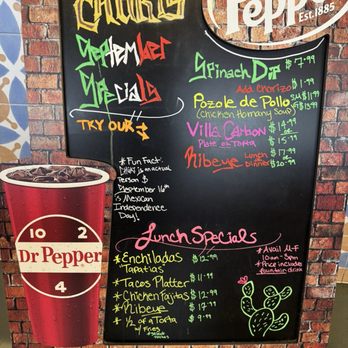 Pepper
Est. 1885
September
Specials
TRY OUR
* Fun Fact:
is an actual
Person &
September 16th
is Mexican
Independence
Day!
Spinach Dip $7.99
Add Chorizo $1.99
Pozole de Pollo
(Chicken Hominy Soup)
Villa Carbon $14.99
Plate or Torta $15.99
Ribeye Lunch $17.99
Dinner $20.99
Lunch Specials
* Enchiladas $12.99
Tapatias
* Tacos Platter $11.99
* Chicken Fajitas $12.99
* Ribeye $17.99
* 1/2 of a Torta $9.99
& Fries
* Avail M-F
10am - 3pm
* Price includes
fountain drink
10 2
Dr Pepper
4